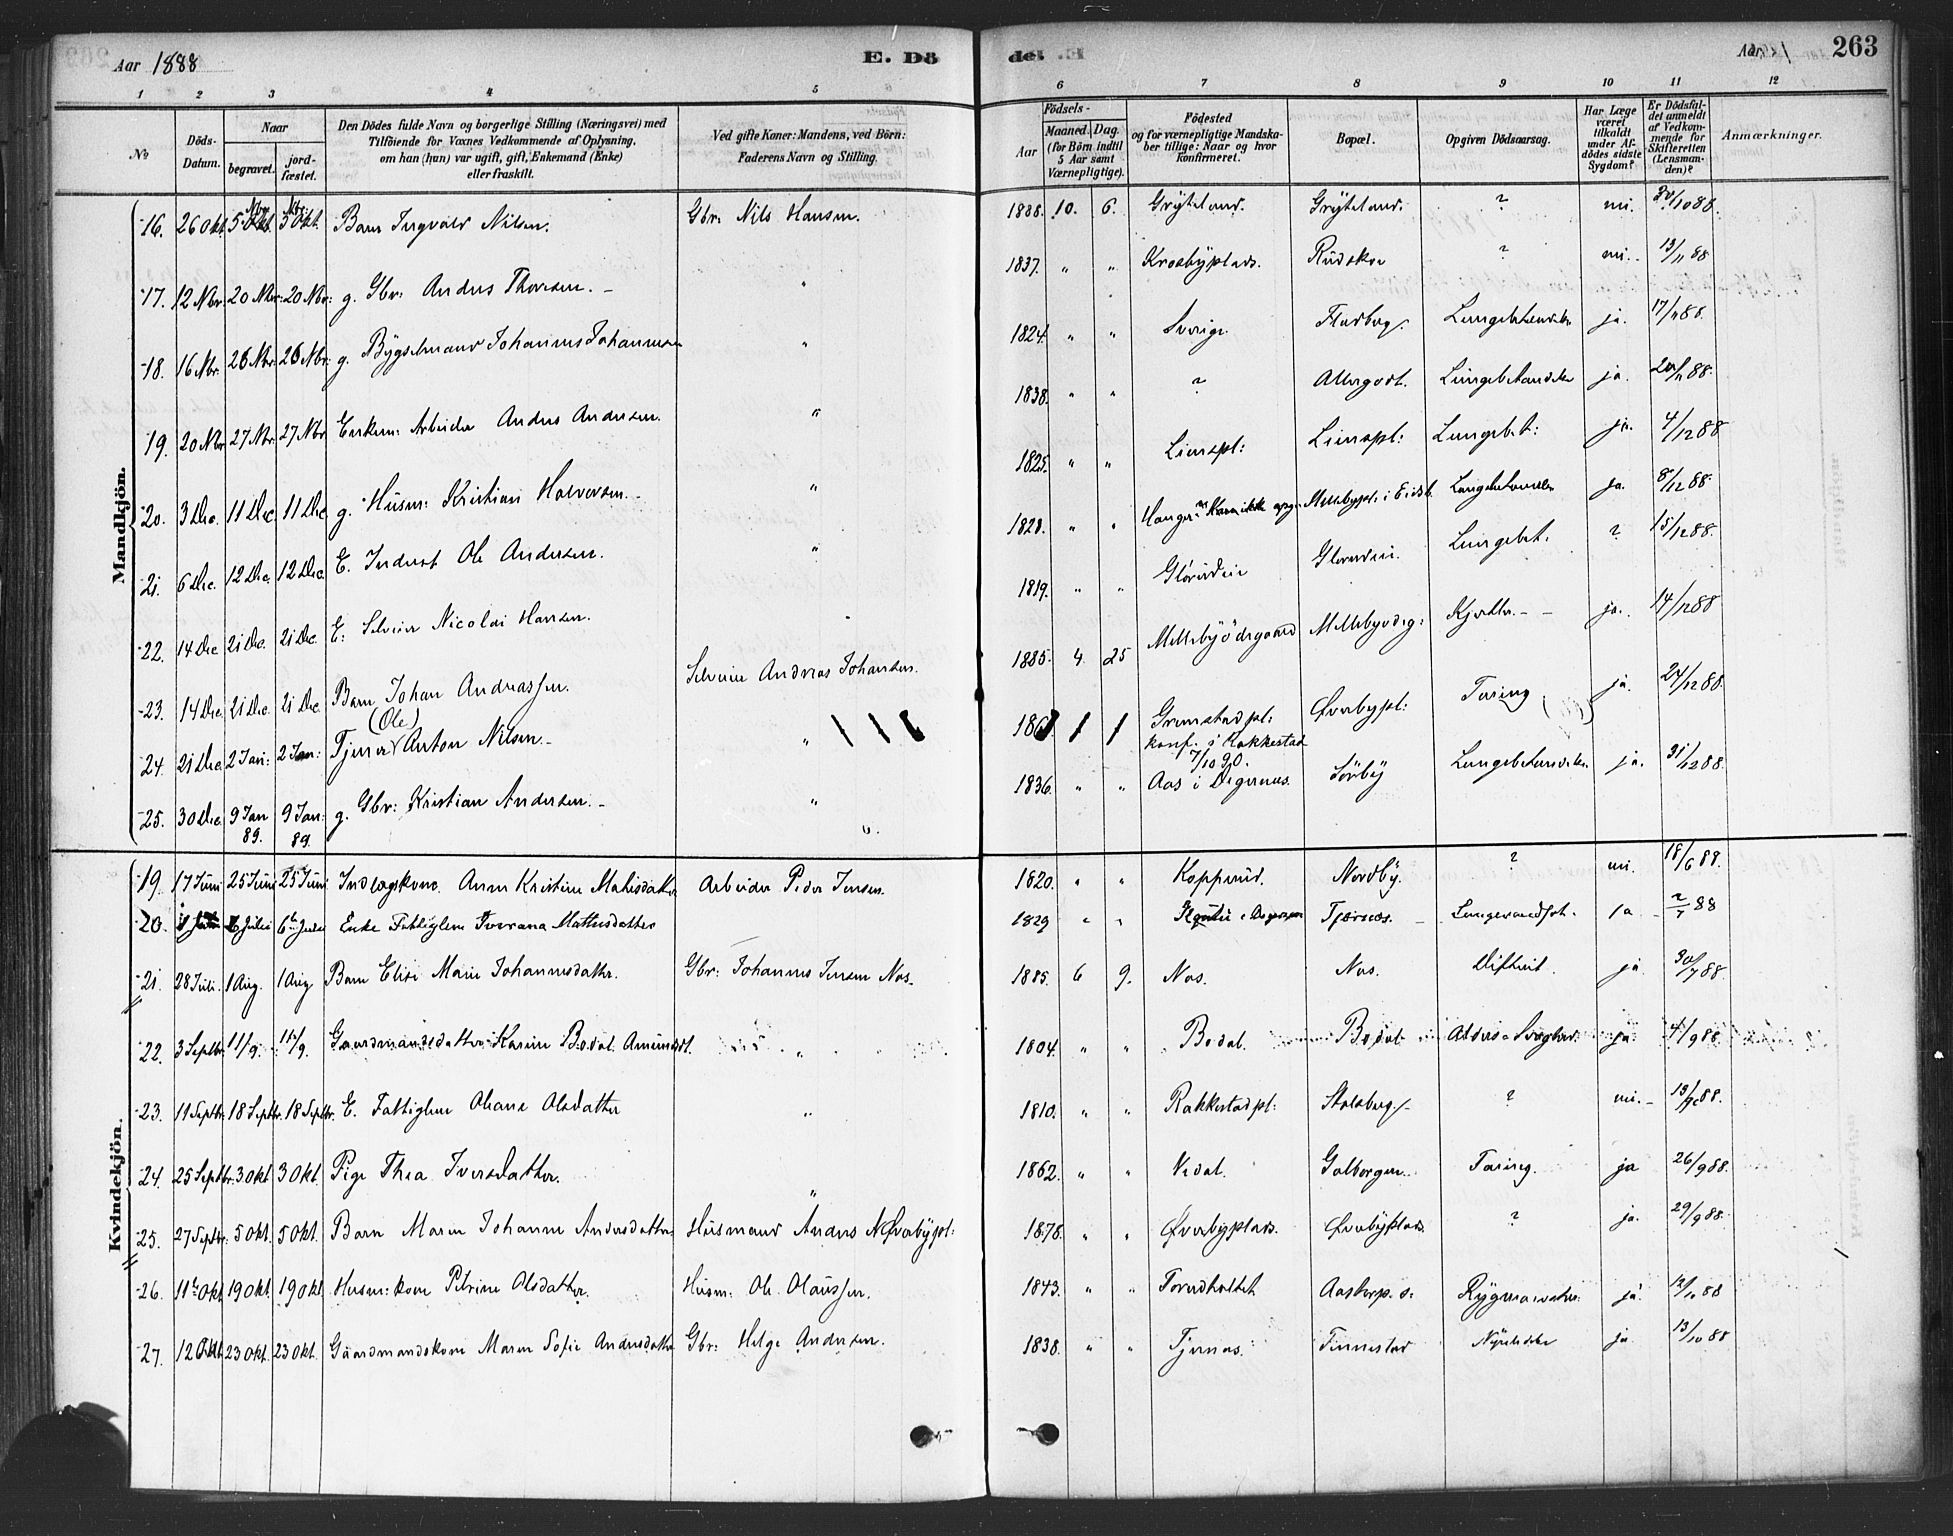 Aar 1888 E. Dö
de. E. Aar 1 263
1 2 3 4 5 6 7 8 9 10 11 12
No
Döds-Datum.
Naar
begravet.
jord-fæstet.
Den Dödes fulde Navn og borgerlige Stilling (Næringsvei) med Tilföiende for Voxnes Vedkommende af Oplysning, om han (hun) var ugift, gift, Enkemand (Enke) eller fraskilt.
Ved gifte Koner: Mandens, ved Börn: Faderens Navn og Stilling.
Födsels-
Aar
Maaned. Dag.
(for Börn indtil 5 Aar samt Værnepligtige).
Födested og for værnepligtige Mandskaber tillige: Naar og hvor konfirmeret.
Bopæl.
Opgiven Dödsaarsag.
Har Læge været tilkaldt under Afdödes sidste Sygdom?
Er Dödsfaldet anmeldt af Vedkommende for Skifteretten (Lensmanden)?
Anmærkninger.
Mandkjön.
16. 26 Okt. 5 Nbr. 5 Nbr. Barn Ingvald Nilsen. Gbr. Nils Hansen. 1888. 10. 6. Grÿteland. Grÿteland. ? nei. 30/10 88.
17. 12 Nbr. 20 Nbr. 20 Nbr. g. Gbr: Anders Thoresen. " 1837. " " Krosbyplads. Rudskou ? nei. 13/11 88
18. 16 Nbr. 26 Nbr. 26 Nbr. g. Bÿgselmand Johannes Johannesen " 1824. " " Sverige. ja. 17/11 88.
19. 20 Nbr. 27 Nbr. 27 Nbr. Enkem: Arbeider Anders Andersen. " 1838. " " ? Allergodt. Lungebetændelse ja. 20/11 88.
20. 3 Dec. 11 Dec. 11 Dec. g. Husm: Kristian Halvorsen. " 1825. " " Lienspl: Lienspl: Lungebet: ja. 4/12 88
21. 6 Dec. 12 Dec. 12 Dec. E. Inderst Ole Andersen. " 1828. " " Lungebetændelse ja. 8/12 88.
22. 14 Dec 21 Dec. 21 Dec. E: Selveier Nicolai Hansen. 1819. " " Lungebet. ? 15/12 88.
23. 14 Dec 21 Dec. 21 Dec. Barn Johan Andreassen. Selveier Andreas Johansen. 1885. 4. 25 Mellebÿödegaard Mellebyödeg: ja. 14/12 88
24. 21 Dec. 2 Jan: 2 Jan: Tjener (Ole) Anton Nilsen. " 186 Grimstadpl: konf. i Rakkestad 7/10 90. Øverbypl: Tæring ja. 24/12 88.
25. 30 Dec. 9 Jan 89. 9 Jan: 89. g. Gbr: Kristian Andersen. " 1836. " " Aas i Degernes. Sörbÿ Lungebetændelse. ja. 31/12 88.
Kvindekjön.
19. 17 Juni 25 Juni 25 Juni Indlagskone Anne Kristine Mathisdatter Arbeider Peder Jensen. 1820. " " Kopperud. Nordbÿ. ? nei. 18/6 88.
20. 6 Julii 6te Julii Enke Fattiglem Mathisdatter 1829 " " Tjærnæs. ja 2/7 88
21. 28 Juli. 1 Aug. 1 Aug Barn Elise Marie Johannesdatter. Gbr: Johannes Jensen Næs. 1885. 6 9. Næs. Næs. Difterit. ja 30/7 88.
22. 3 Septbr. 11/9. 11/9. Gaardmandsdatter Karine Bodal Amundsdt. " 1804. " " Bodal. Bodal. ja. 4/9 88.
23. 11 Septbr. 18 Septbr. 18 Septbr. E. Fattiglem Oleane Olsdatter " 1810. " " Rakkestadpl: ? nei. 13/9 88.
24. 25 Septbr. 3 Okt. 3 Okt. Pige Thea Iversdatter. " 1862. " " Vedal. Tæring. ja 26/9 88.
25. 27 Septbr. 5 Okt. 5 Okt. Barn Maren Johanne Andersdatter Husmand Anders N. Øverbÿpl: 1878. " " Øverbyplads. Øverbÿplads ? ja. 29/9 88.
26. 11te Okt 19 Okt. 19 Okt. Husm: kone Petrine Olsdatter. Husm: Ole Olaussen. 1843. " " ja. 12/10 88
27. 12 Okt 23 Okt. 23 Okt. Gaardmandskone Maren Sofie Andersdatter Gbr: Helge Andersen. 1838. " " Tjernæs. Tinnestad ja 13/10 88